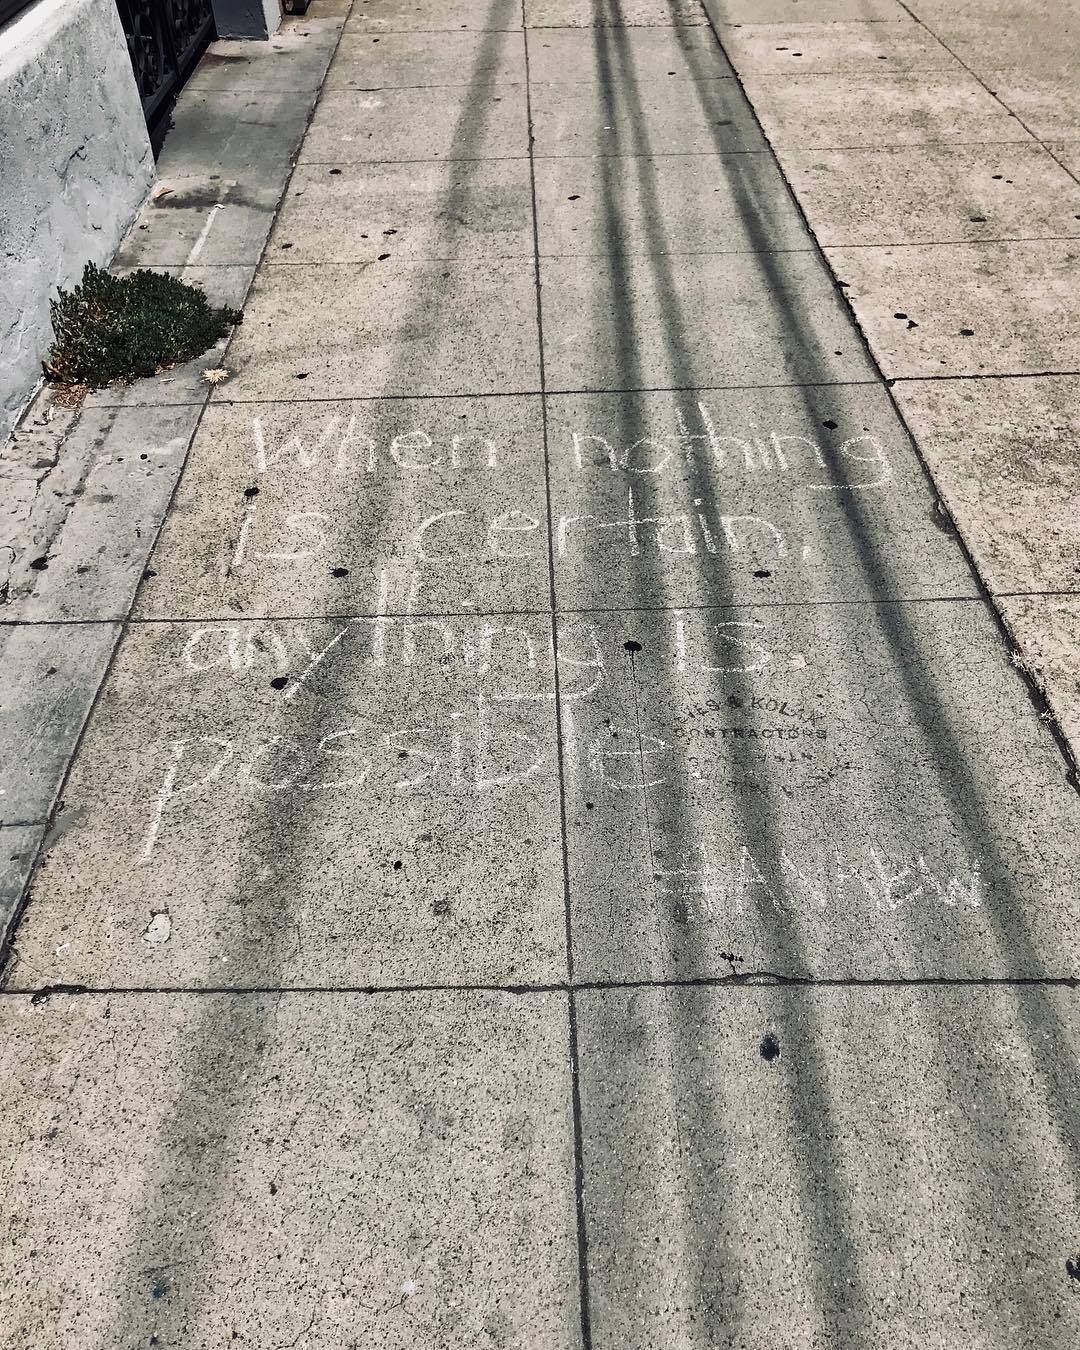 When nothing
is certain,
anything is.
possible.
CONTRACTORS